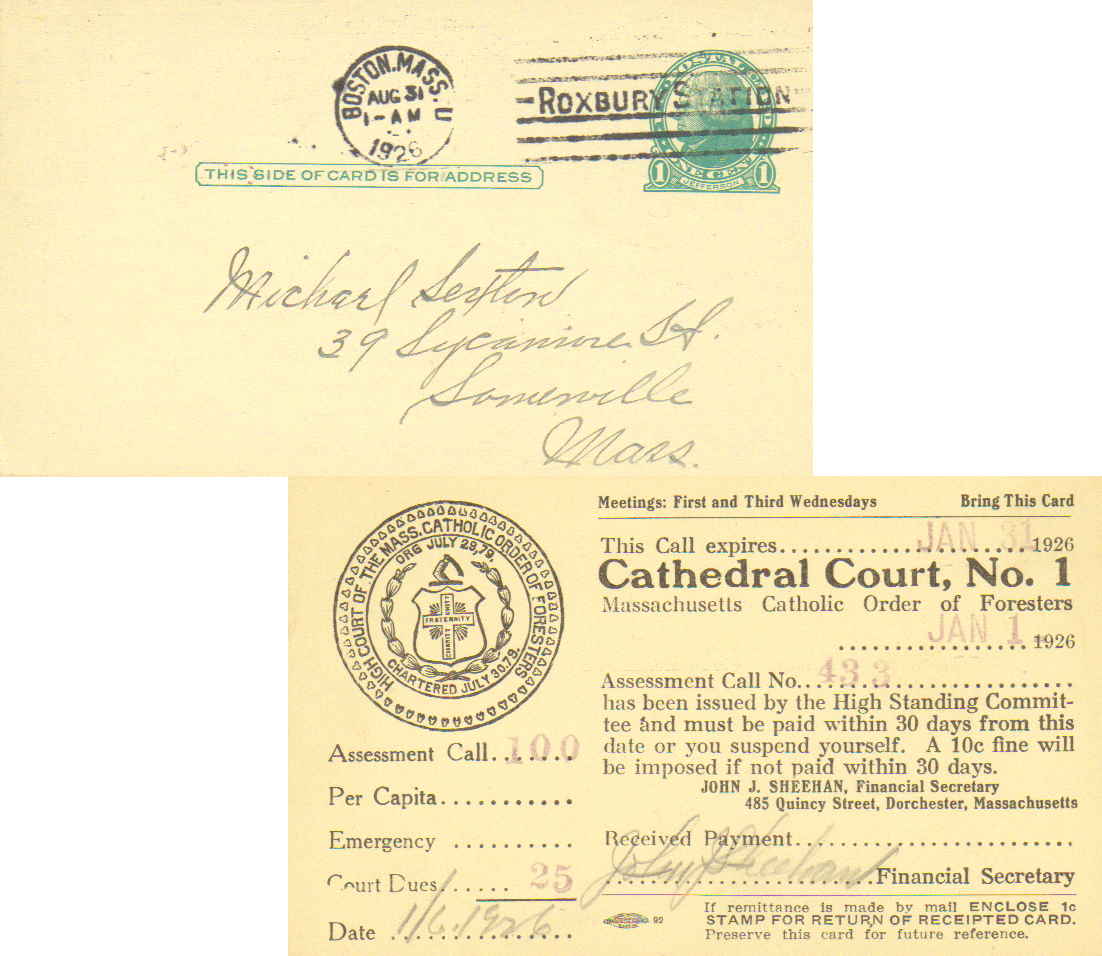 BOSTON, MASS. U
AUG 31
1-AM
1926
ROXBURY STATION
POSTAL CARD
ONE CENT
1 JEFFERSON 1
THIS SIDE OF CARD IS FOR ADDRESS
Michael Sexton
39 Sycamore St.
Somerville
Mass.
HIGH COURT OF THE MASS. CATHOLIC ORDER OF FORESTERS
ORG JULY 29,79.
UNITY
FRATERNITY
CHARITY
CHARTERED JULY 30.79.
Assessment Call........ 100
Per Capita...........
Emergency ..........
Court Dues...... 25
Date 1/6.1926
Meetings: First and Third Wednesdays Bring This Card
This Call expires JAN 31 1926
Cathedral Court, No. 1
Massachusetts Catholic Order of Foresters
JAN 1 1926
Assessment Call No. 433
has been issued by the High Standing Commit-
tee and must be paid within 30 days from this
date or you suspend yourself. A 10c fine will
be imposed if not paid within 30 days.
JOHN J. SHEEHAN, Financial Secretary
485 Quincy Street, Dorchester, Massachusetts
Received Payment
John J Sheehan Financial Secretary
92
If remittance is made by mail ENCLOSE 1c
STAMP FOR RETURN OF RECEIPTED CARD.
Preserve this card for future reference.